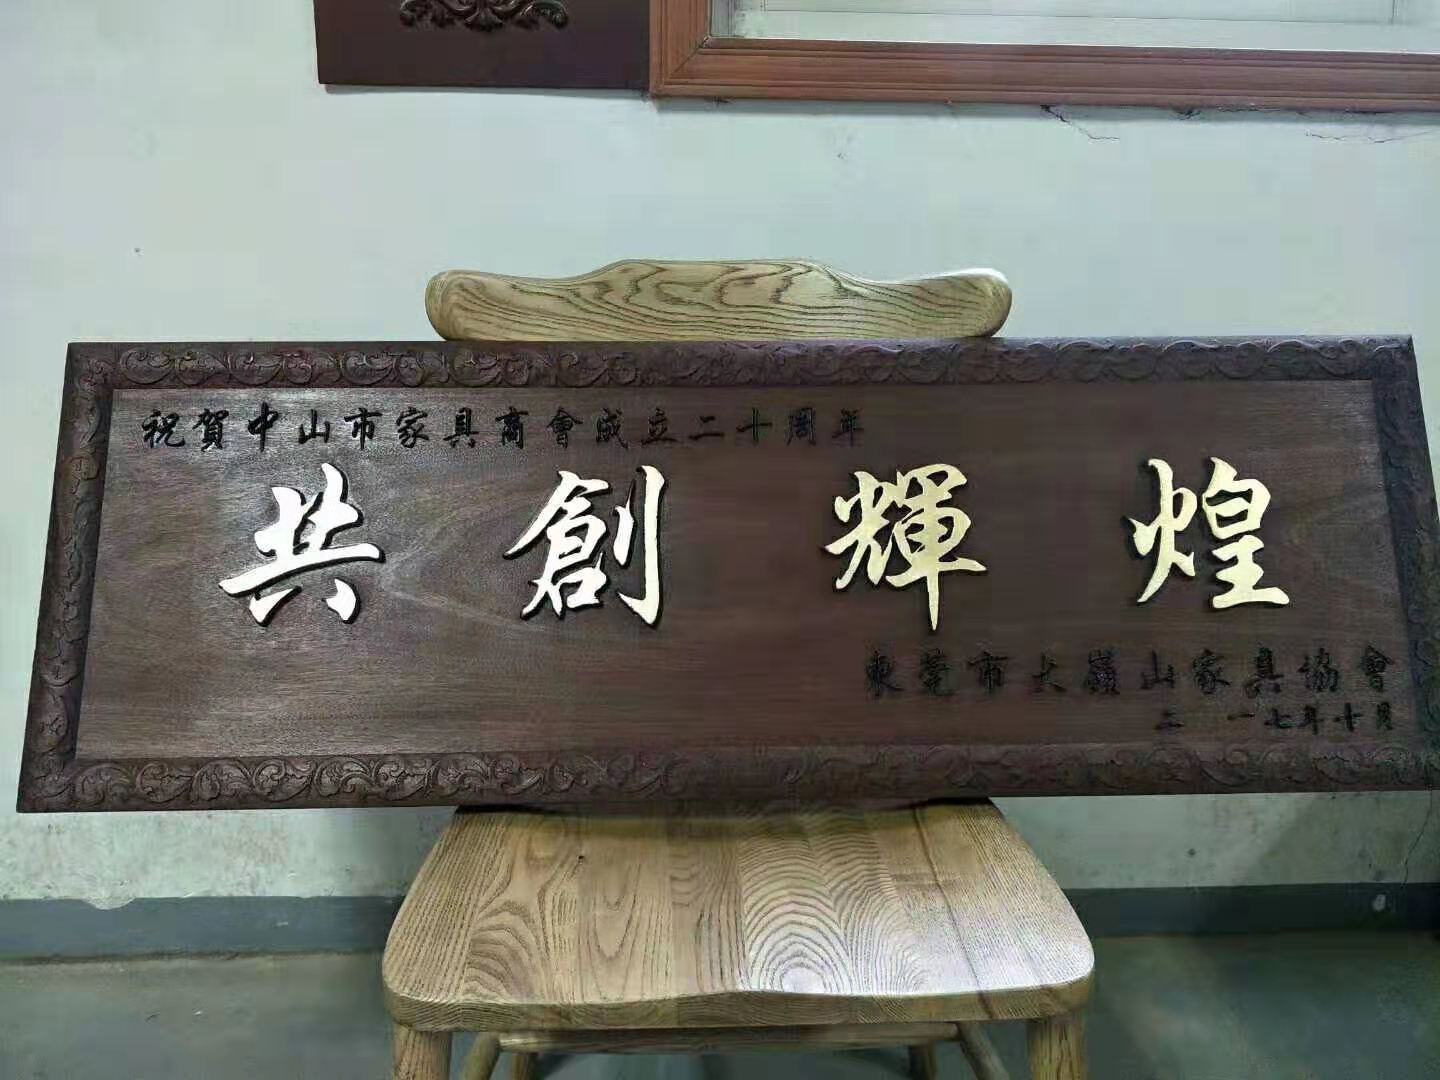 祝賀中山市家具商會成立二十周年
共創輝煌
東莞市大嶺山家具協會
二 一七年十月